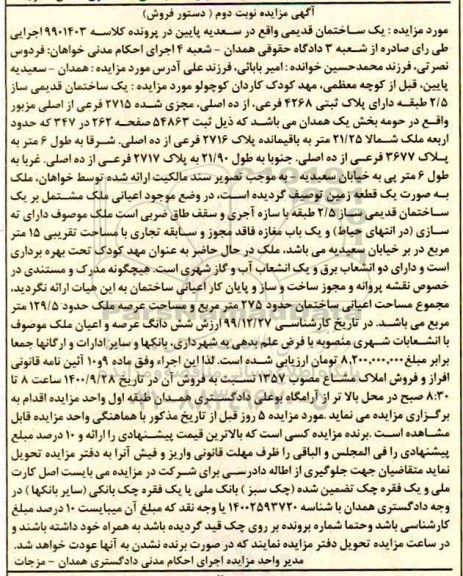 آگهی مزایده نوبت دوم ( دستور فروش)
مورد مزایده : یک ساختمان قدیمی واقع در سعدیه پایین در پرونده کلاسه ۹۹۰۱۴۰۳اجرایی
طی رای صادره از شعبه ۳ دادگاه حقوقی همدان - شعبه ۴ اجرای احکام مدنی خواهان: فردوس
نصرتی، فرزند محمدحسین خوانده : امیر بابائی، فرزند علی آدرس مورد مزایده : همدان - سعیدیه
پایین، قبل از کوچه معظمی، مهد کودک کاردان کوچولو مورد مزایده : یک ساختمان قدیمی ساز
۲/۵ طبقه دارای پلاک ثبتی ۴۲۶۸ فرعی، از ده اصلی، مجزی شده ۲۷۱۵ فرعی از اصلی مزبور
واقع در حومه بخش یک همدان می باشد که ذیل ثبت ۵۴۸۶۳ صفحه ۲۶۲ در ۳۴۷ که حدود
اربعه ملک شمالا ۲۱/۲۵ متر به باقیمانده پلاک ۲۷۱۶ فرعی از ده اصلی. شرقا به طول ۶ متر به
پلاک ۳۶۷۷ فرعی از ده اصلی. جنوبا به طول ۲۱/۹۰ به پلاک ۲۷۱۷ فرعی از ده اصلی. غربا به
طول ۶ متر پی به خیابان سعیدیه - به موجب تصویر سند مالکیت ارائه شده توسط خواهان، ملک
به صورت یک قطعه زمین توصیف گردیده است، در وضع موجود اعیانی ملک مشتمل بر یک
ساختمان قدیمی ساز ۲/۵ طبقه با سازه آجری و سقف طاق ضربی است ملک موصوف دارای ته
سازی (در انتهای حیاط) و یک باب مغازه فاقد مجوز و سابقه تجاری با مساحت تقریبی ۱۵ متر
مربع در بر خیابان سعیدیه می باشد، ملک در حال حاضر به عنوان مهد کودک تحت بهره برداری
است و دارای دو انشعاب برق و یک انشعاب آب و گاز شهری است. هیچگونه مدرک و مستندی در
خصوص نقشه پروانه و مجوز ساخت و ساز و پایان کار اعیانی ساختمان به این هیات ارائه نگردید،
مجموع مساحت اعیانی ساختمان حدود ۲۷۵ متر مربع و مساحت عرصه ملک حدود ۱۲۹/۵ متر
مربع می باشد. در تاریخ کارشناسی ۹۹/۱۲/۲۷ ارزش شش دانگ عرصه و اعیان ملک موصوف
با انشعابات شهری منصوبه با فرض علم بدهی به شهرداری، بانکها و سایر ادارات و ارگانها جمعا
برابر مبلغ ۸,۲۰۰,۰۰۰,۰۰۰ تومان ارزیابی شده است. لذا این اجراء وفق ماده ۹و۱۰ آئین نامه قانونی
افراز و فروش املاک مشاع مصوب ۱۳۵۷ نسبت به فروش آن در تاریخ ۱۴۰۰/۹/۲۸ ساعت ۸ تا
۸:۳۰ صبح در محل بالا تر از آرامگاه بوعلی دادگستری همدان طبقه اول واحد مزایده اقدام به
برگزاری مزایده می نماید .مورد مزایده ۵ روز قبل از تاریخ مذکور با هماهنگی واحد مزایده قابل
مشاهده است .برنده مزایده کسی است که بالاترین قیمت پیشنهادی را ارائه و ۱۰ درصد مبلغ
پیشنهادی را فی المجلس و الباقی را ظرف مهلت قانونی واریز و فیش آنرا به دفتر مزایده تحویل
نماید متقاضیان جهت جلوگیری از اطاله دادرسی برای شرکت در مزایده می بایست اصل کارت
ملی و یک فقره چک تضمین شده (چک سبز ) بانک ملی یا یک فقره چک بانکی (سایر بانکها ) در
وجه دادگستری همدان با شناسه ۱۴۰۰۲۵۹۳۷۲۰ یا وجه نقد که مبلغ آن میبایست ۱۰ درصد مبلغ
کارشناسی باشد وحتما شماره پرونده بر روی چک قید گردیده باشد به همراه خود داشته باشند و
در ساعت مزایده تحویل دفتر مزایده نمایند که در صورت برنده نشدن به آنها عودت خواهد شد.
مدیر واحد مزایده اجرای احکام مدنی دادگستری همدان - مزجات